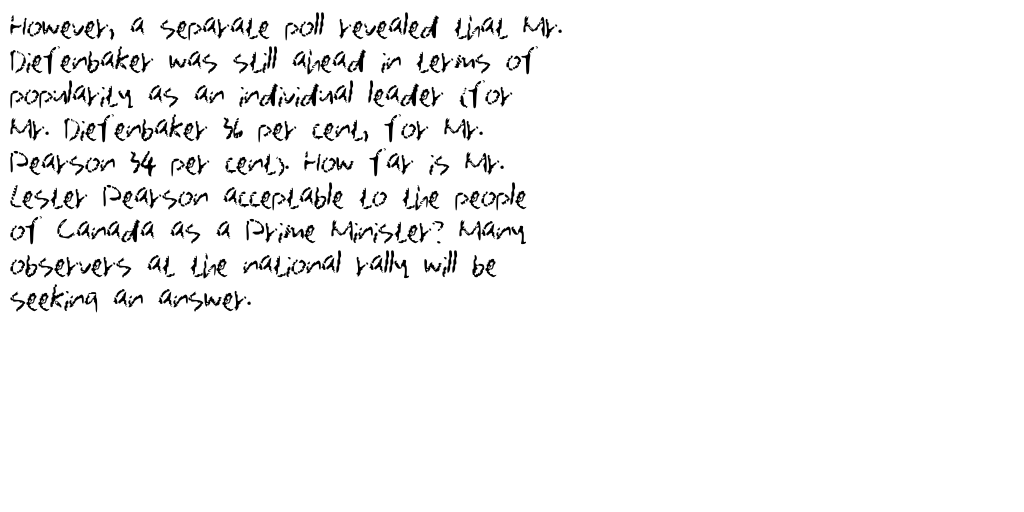 However, a separate poll revealed that Mr.
Diefenbaker was still ahead in terms of
popularity as an individual leader (for
Mr. Diefenbaker 36 per cent, for Mr.
Pearson 34 per cent). How far is Mr.
Lester Pearson acceptable to the people
of Canada as a Prime Minister? Many
observers at the national rally will be
seeking an answer.